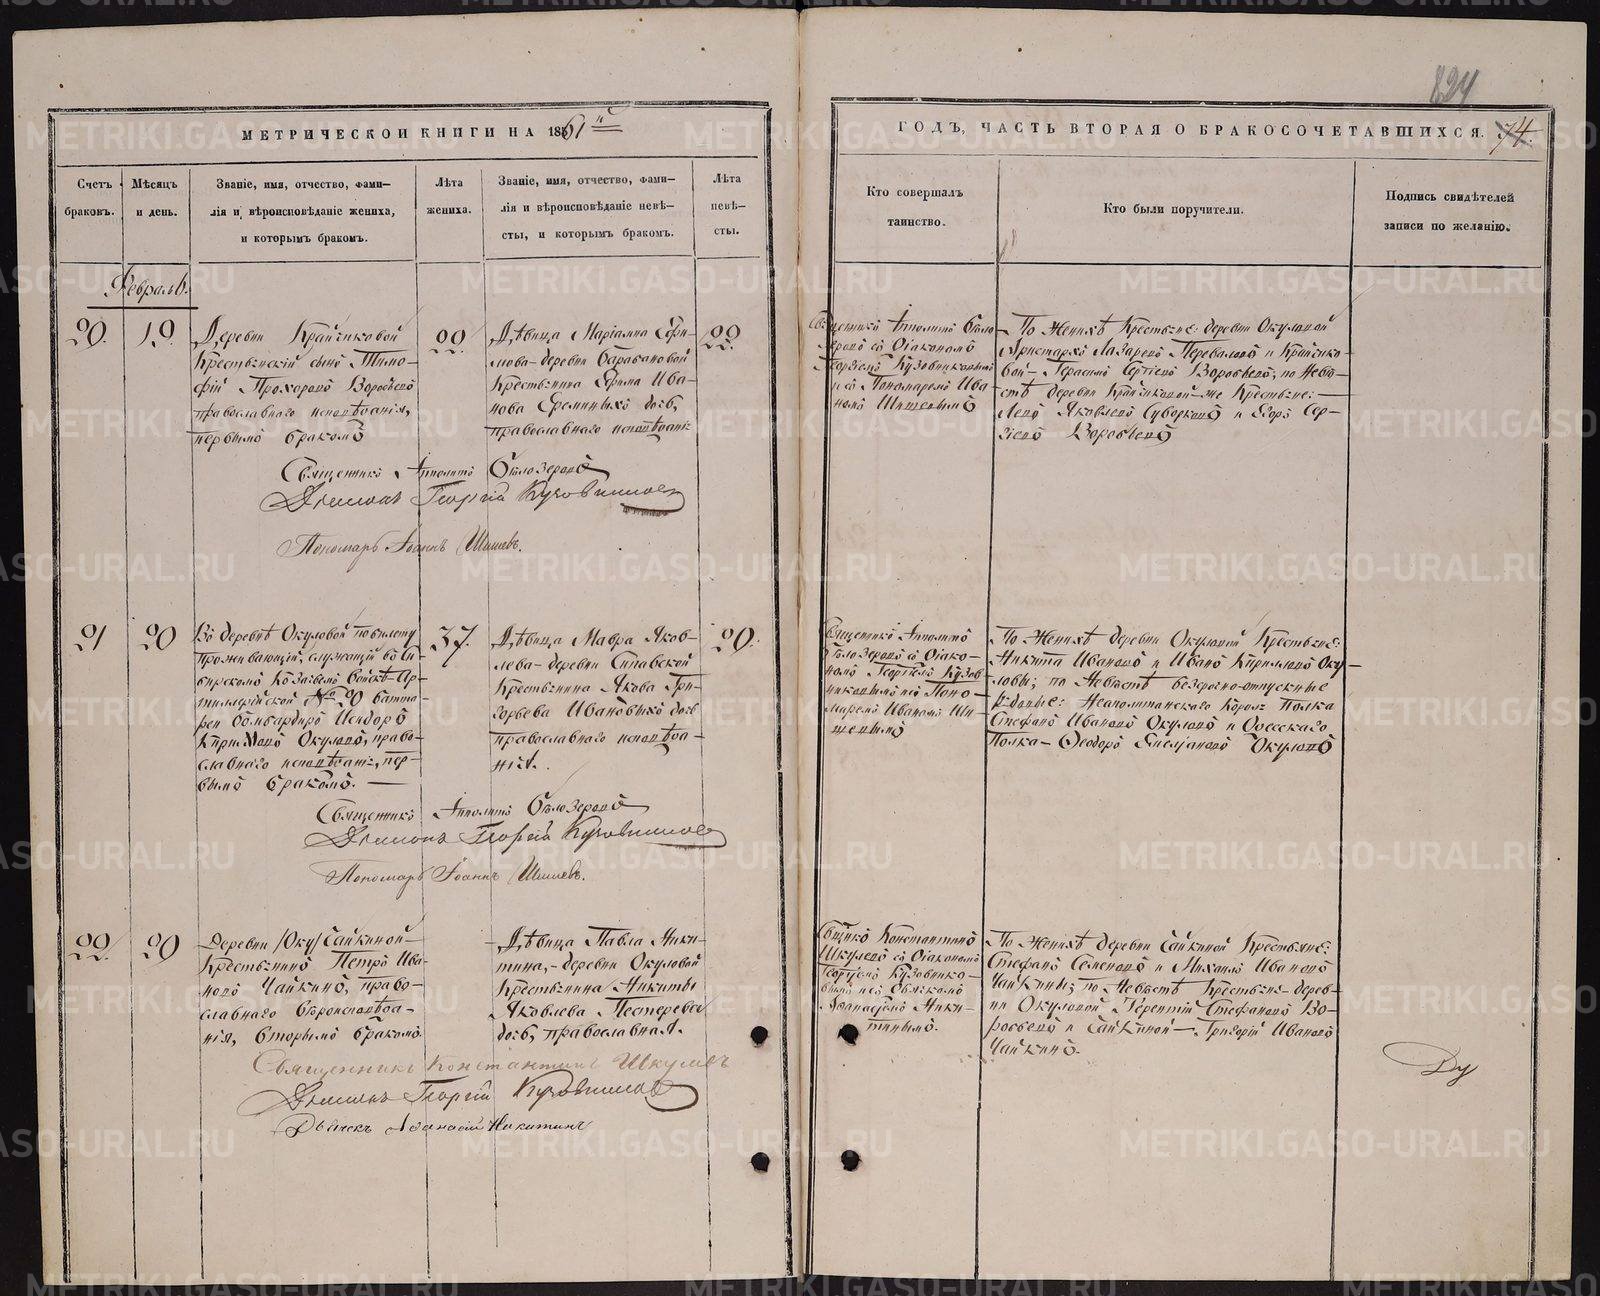 824
МЕТРИЧЕСКОИ КНИГИ НА 1861й
ГОДЪ, ЧАСТЬ ВТОРАЯ О БРАКОСОЧЕТАВШИХСЯ. 74.
Счетъ браковъ.
Мѣсяцъ и день.
Званіе, имя, отчество, фами-
лія и вѣроисповѣданіе жениха,
и которымъ бракомъ.
Лѣта жениха.
Званіе, имя, отчество, фами-
лія и вѣроисповѣданіе невѣ-
сты, и которымъ бракомъ.
Лѣта невѣ-
сты.
Кто совершалъ
таинство.
Кто были поручители.
Подпись свидѣтелей
записи по желанію.
Февраль.
20.
19.
Деревни Крайчиковой
Крестьянскій сынъ Тимо-
фій Прохоровъ Воробьевъ
православнаго исповѣданія,
первымъ бракомъ
22
Дѣвица Маріамна Ефи-
мова деревни Барабановой
Крестьянина Ефима Ива-
нова Ереминыхъ дочь,
православнаго исповѣдані:
22.
Священникъ Ипполитъ Бѣло-
зеровъ съ Діакономъ
Георгіемъ Кузовниковымъ
и съ Пономаремъ Ива-
номъ Шишевымъ
По Женихѣ Крестьяне: деревни Окуловой
Аристархъ Лазаревъ Переваловъ и Крайчико-
вой Герасимъ Сергіевъ Воробьевъ, по Невѣ-
стѣ деревни Крайчиковой-же Крестьяне:
Левъ Яковлевъ Суворковъ и Егоръ Сер-
гіевъ Воробьевъ
Священникъ Ипполитъ Бѣлозеровъ
Діаконъ Георгій Кузовниковъ
Пономарь Іоаннъ Шишевъ.
21
20
Въ деревнѣ Окуловой по билету
проживающій, служащій во Си-
бирскомъ Козачьемъ войскѣ Ар-
тиллерійской № 20 батта-
реи бомбардиръ Исидоръ
Кирилловъ Окуловъ, право-
славнаго исповѣдані:, пер-
вымъ бракомъ.
37.
Дѣвица Мавра Яков-
лева деревни Сипавской
Крестьянина Якова Гри-
горьева Ивановыхъ дочь
православнаго исповѣда-
нія.
20.
Священникъ Ипполитъ
Бѣлозеровъ съ Діако-
номъ Георгіемъ Кузов-
никовымъ и съ Поно-
маремъ Иваномъ Ши-
шевымъ
По Женихѣ деревни Окуловой Крестьяне:
Никита Ивановъ и Иванъ Кирилловъ Оку-
ловы; по Невѣстѣ безсрочно-отпускные
рядовые: Неаполитанскаго Корол: Полка
Стефанъ Ивановъ Окуловъ и Одесскаго
Полка Ѳеодоръ Емельяновъ Окуловъ
Священникъ Ипполитъ Бѣлозеровъ
Діаконъ Георгій Кузовниковъ
Пономарь Іоаннъ Шишевъ.
22.
20
Деревни /Оку/ Чайкиной
Крестьянинъ Петръ Ива-
новъ Чайкинъ, право-
славнаго вѣроисповѣда-
нія, вторымъ бракомъ.
Дѣвица Павла Ники-
тина, деревни Окуловой
Крестьянина Никиты
Яковлева Пестерева
дочь, православная.
Священникъ Константинъ
Шкулевъ съ Діакономъ
Георгіемъ Кузовнико-
вымъ и съ Дьячкомъ
Аѳанасіемъ Ники-
тинымъ.
По Женихѣ деревни Чайкиной Крестьяне:
Стефанъ Семеновъ и Михаилъ Ивановъ
Чайкины; по Невѣстѣ Крестьяне дерев-
ни Окуловой Терентій Стефановъ Во-
робьевъ и Чайкиной Григорій Ивановъ
Чайкинъ.
Священникъ Константинъ Шкулевъ
Діаконъ Георгій Кузовниковъ
Дьячекъ Аѳанасій Никитинъ
METRIKI.GASO-URAL.RU